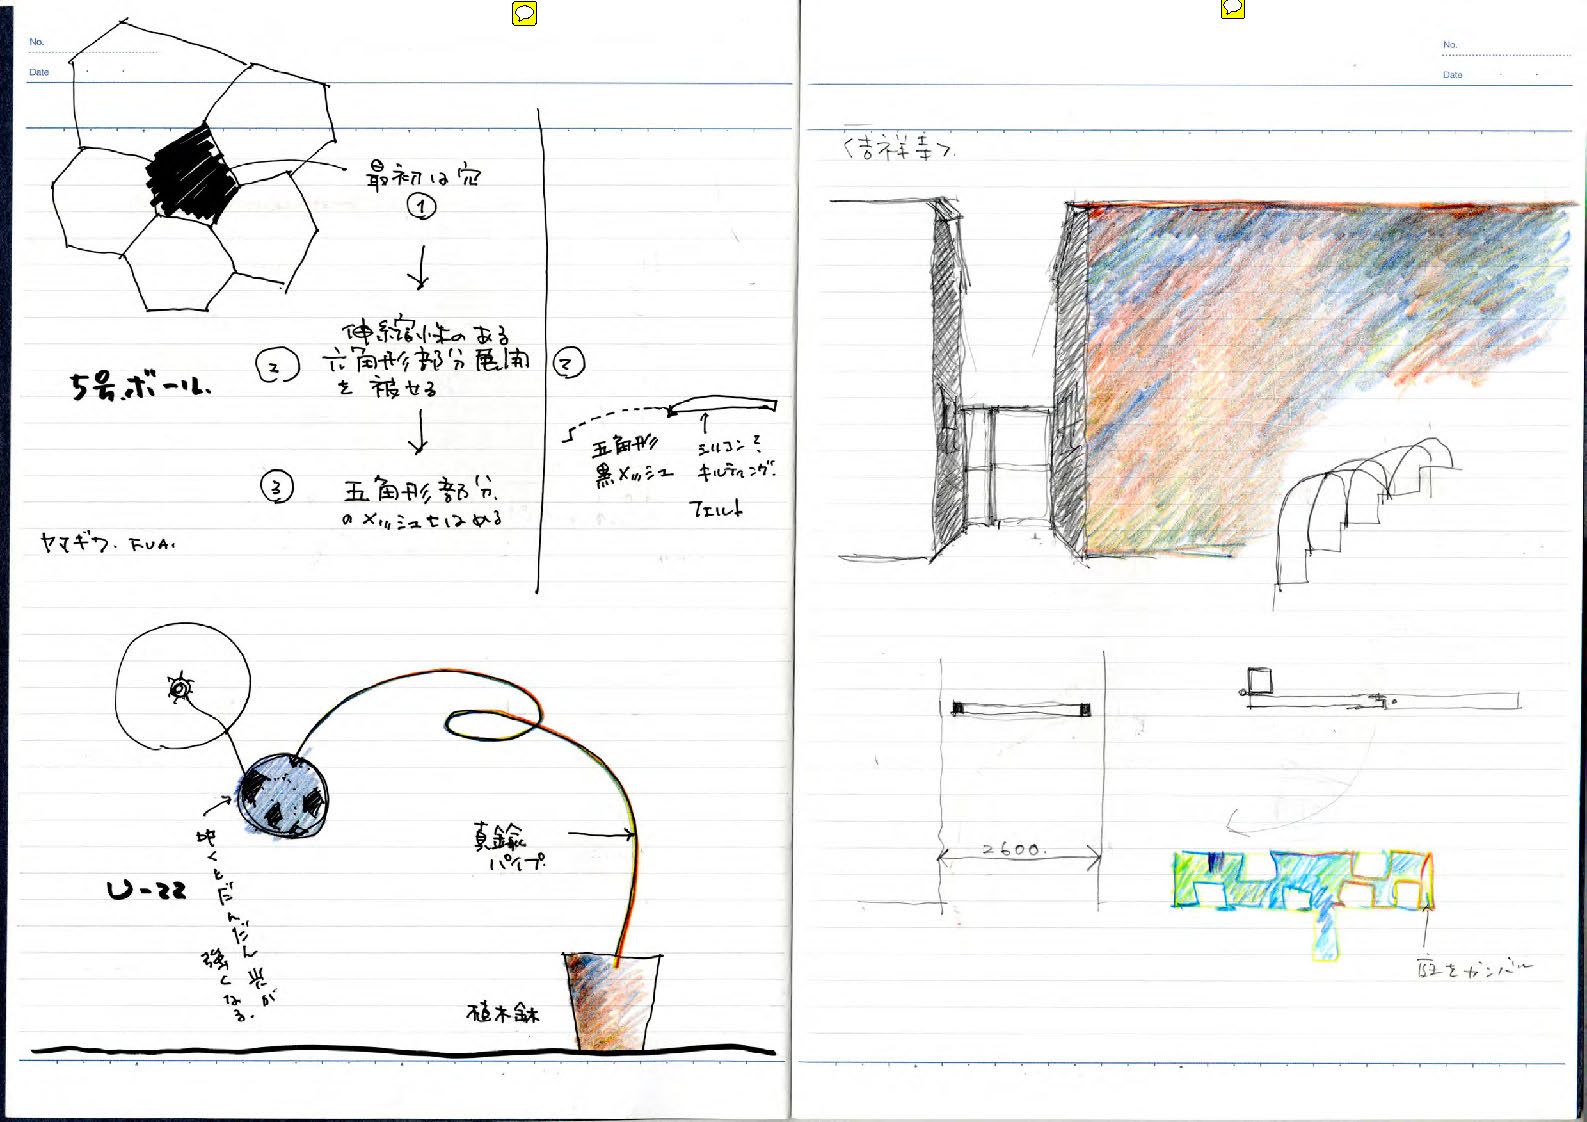 No.
Date
最初は穴
①
②
伸縮性のある
六角形部分展開
を被せる
5号ボール.
③
五角形部分
のメッシュをはめる
ヤマギワ. F.U.A.
②
五角形
黒メッシュ
シリコンで
キルティング.
フェルト
真鍮
パイプ
U-22
叩くとだんだん光が
強くなる.
植木鉢
No.
Date
〈吉祥寺〉.
2600.